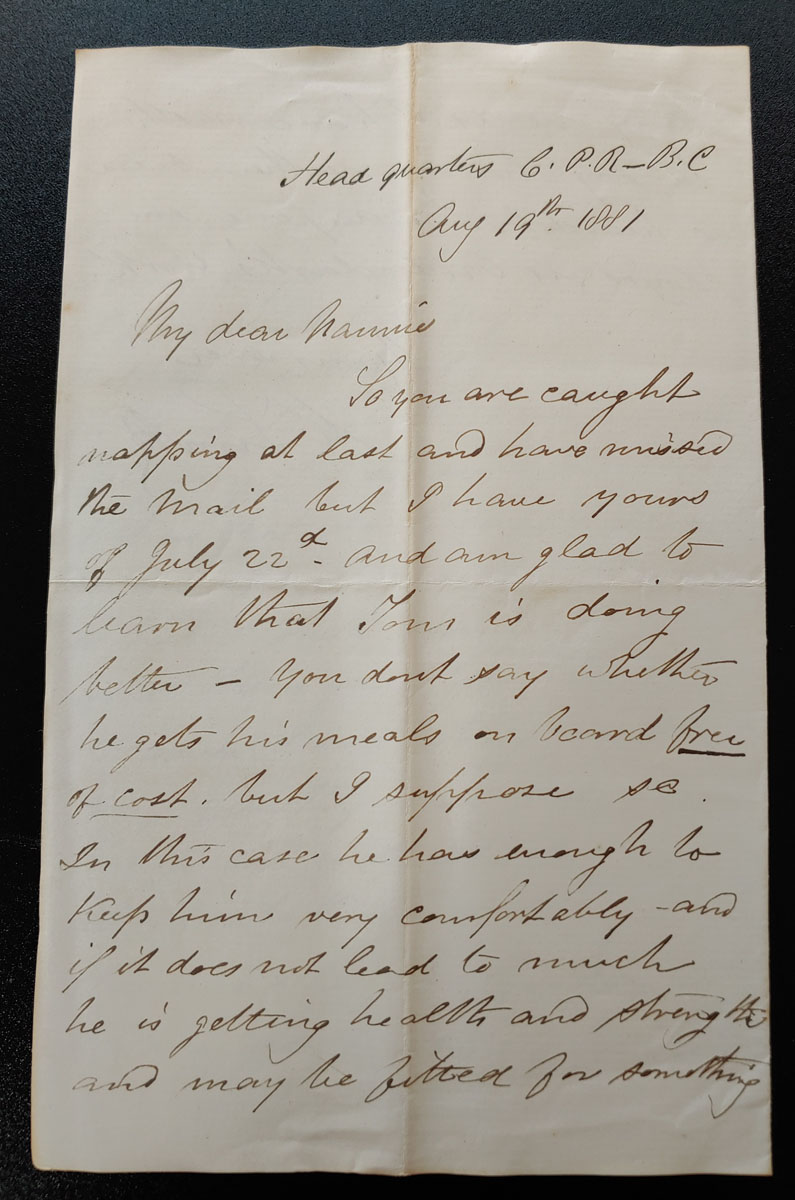 Head quarters C.P.R – B.C
Aug 19th. 1881
My dear Nannie
So you are caught
napping at last and have missed
the Mail but I have yours
of July 22d – and am glad to
learn that Tom is doing
better – You dont say whether
he gets his meals on board free
of cost. but I suppose so.
In this case he has enough to
keep him very comfortably – and
if it does not lead to much
he is getting health and strength
and may be fitted for something